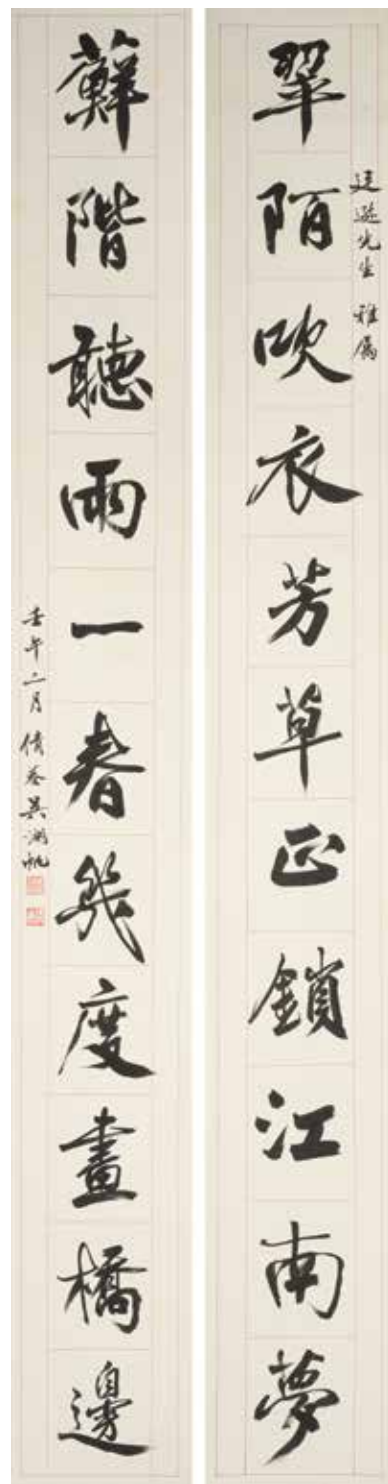 翠陌吹衣芳草正鎖江南夢
廷遜先生 雅屬
蘚階聽雨一春幾度畫橋邊
壬午二月 倩菴吳湖帆